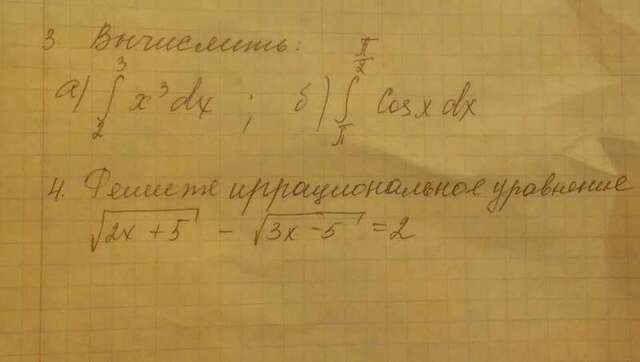 3. Вычислить:
а) ∫₂³ x³ dx ; б) ∫_π^{π/2} Cos x dx
4. Решите иррациональное уравнение
√(2x + 5) - √(3x - 5) = 2